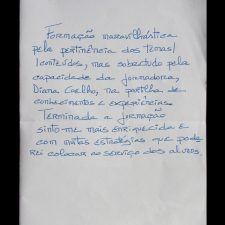 Formação maravilhástica
pela pertinência dos temas/
/conteúdos, mas sobretudo pela
capacidade da formadora,
Diana Coelho, na partilha de
conhecimentos e experiências.
Terminada a formação
sinto-me mais enriquecida e
com muitas estratégias que pode-
rei colocar ao serviço dos alunos.